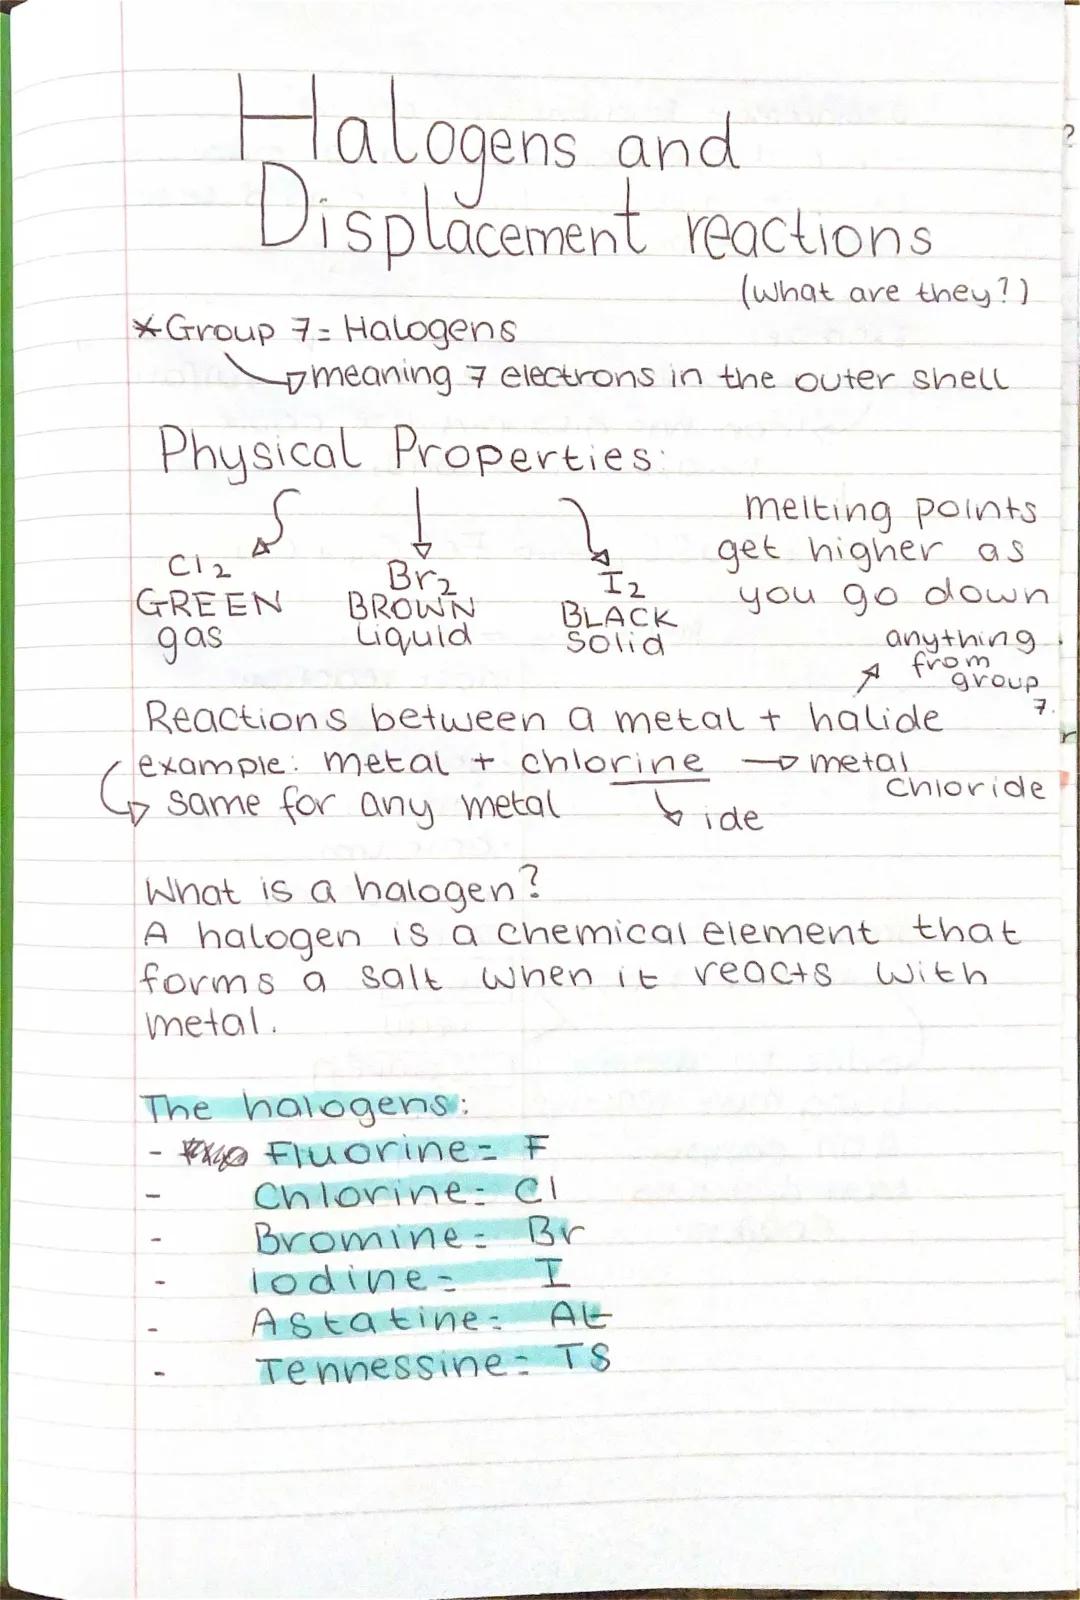 Halogens and
Displacement reactions
(What are they?)
*Group 7= Halogens
meaning 7 electrons in the outer shell
Physical Properties:
Cl2
GREEN
gas
Br2
BROWN
Liquid
I2
BLACK
Solid
melting points
get higher as
you go down
anything
from
group
7.
Reactions between a metal + halide
example: metal + chlorine → metal
chloride
same for any metal
ide
What is a halogen?
A halogen is a chemical element that
forms a salt when it reacts with
metal.
The halogens:
- Fluorine= F
- Chlorine= Cl
- Bromine= Br
- Iodine= I
- Astatine= At
- Tennessine= TS